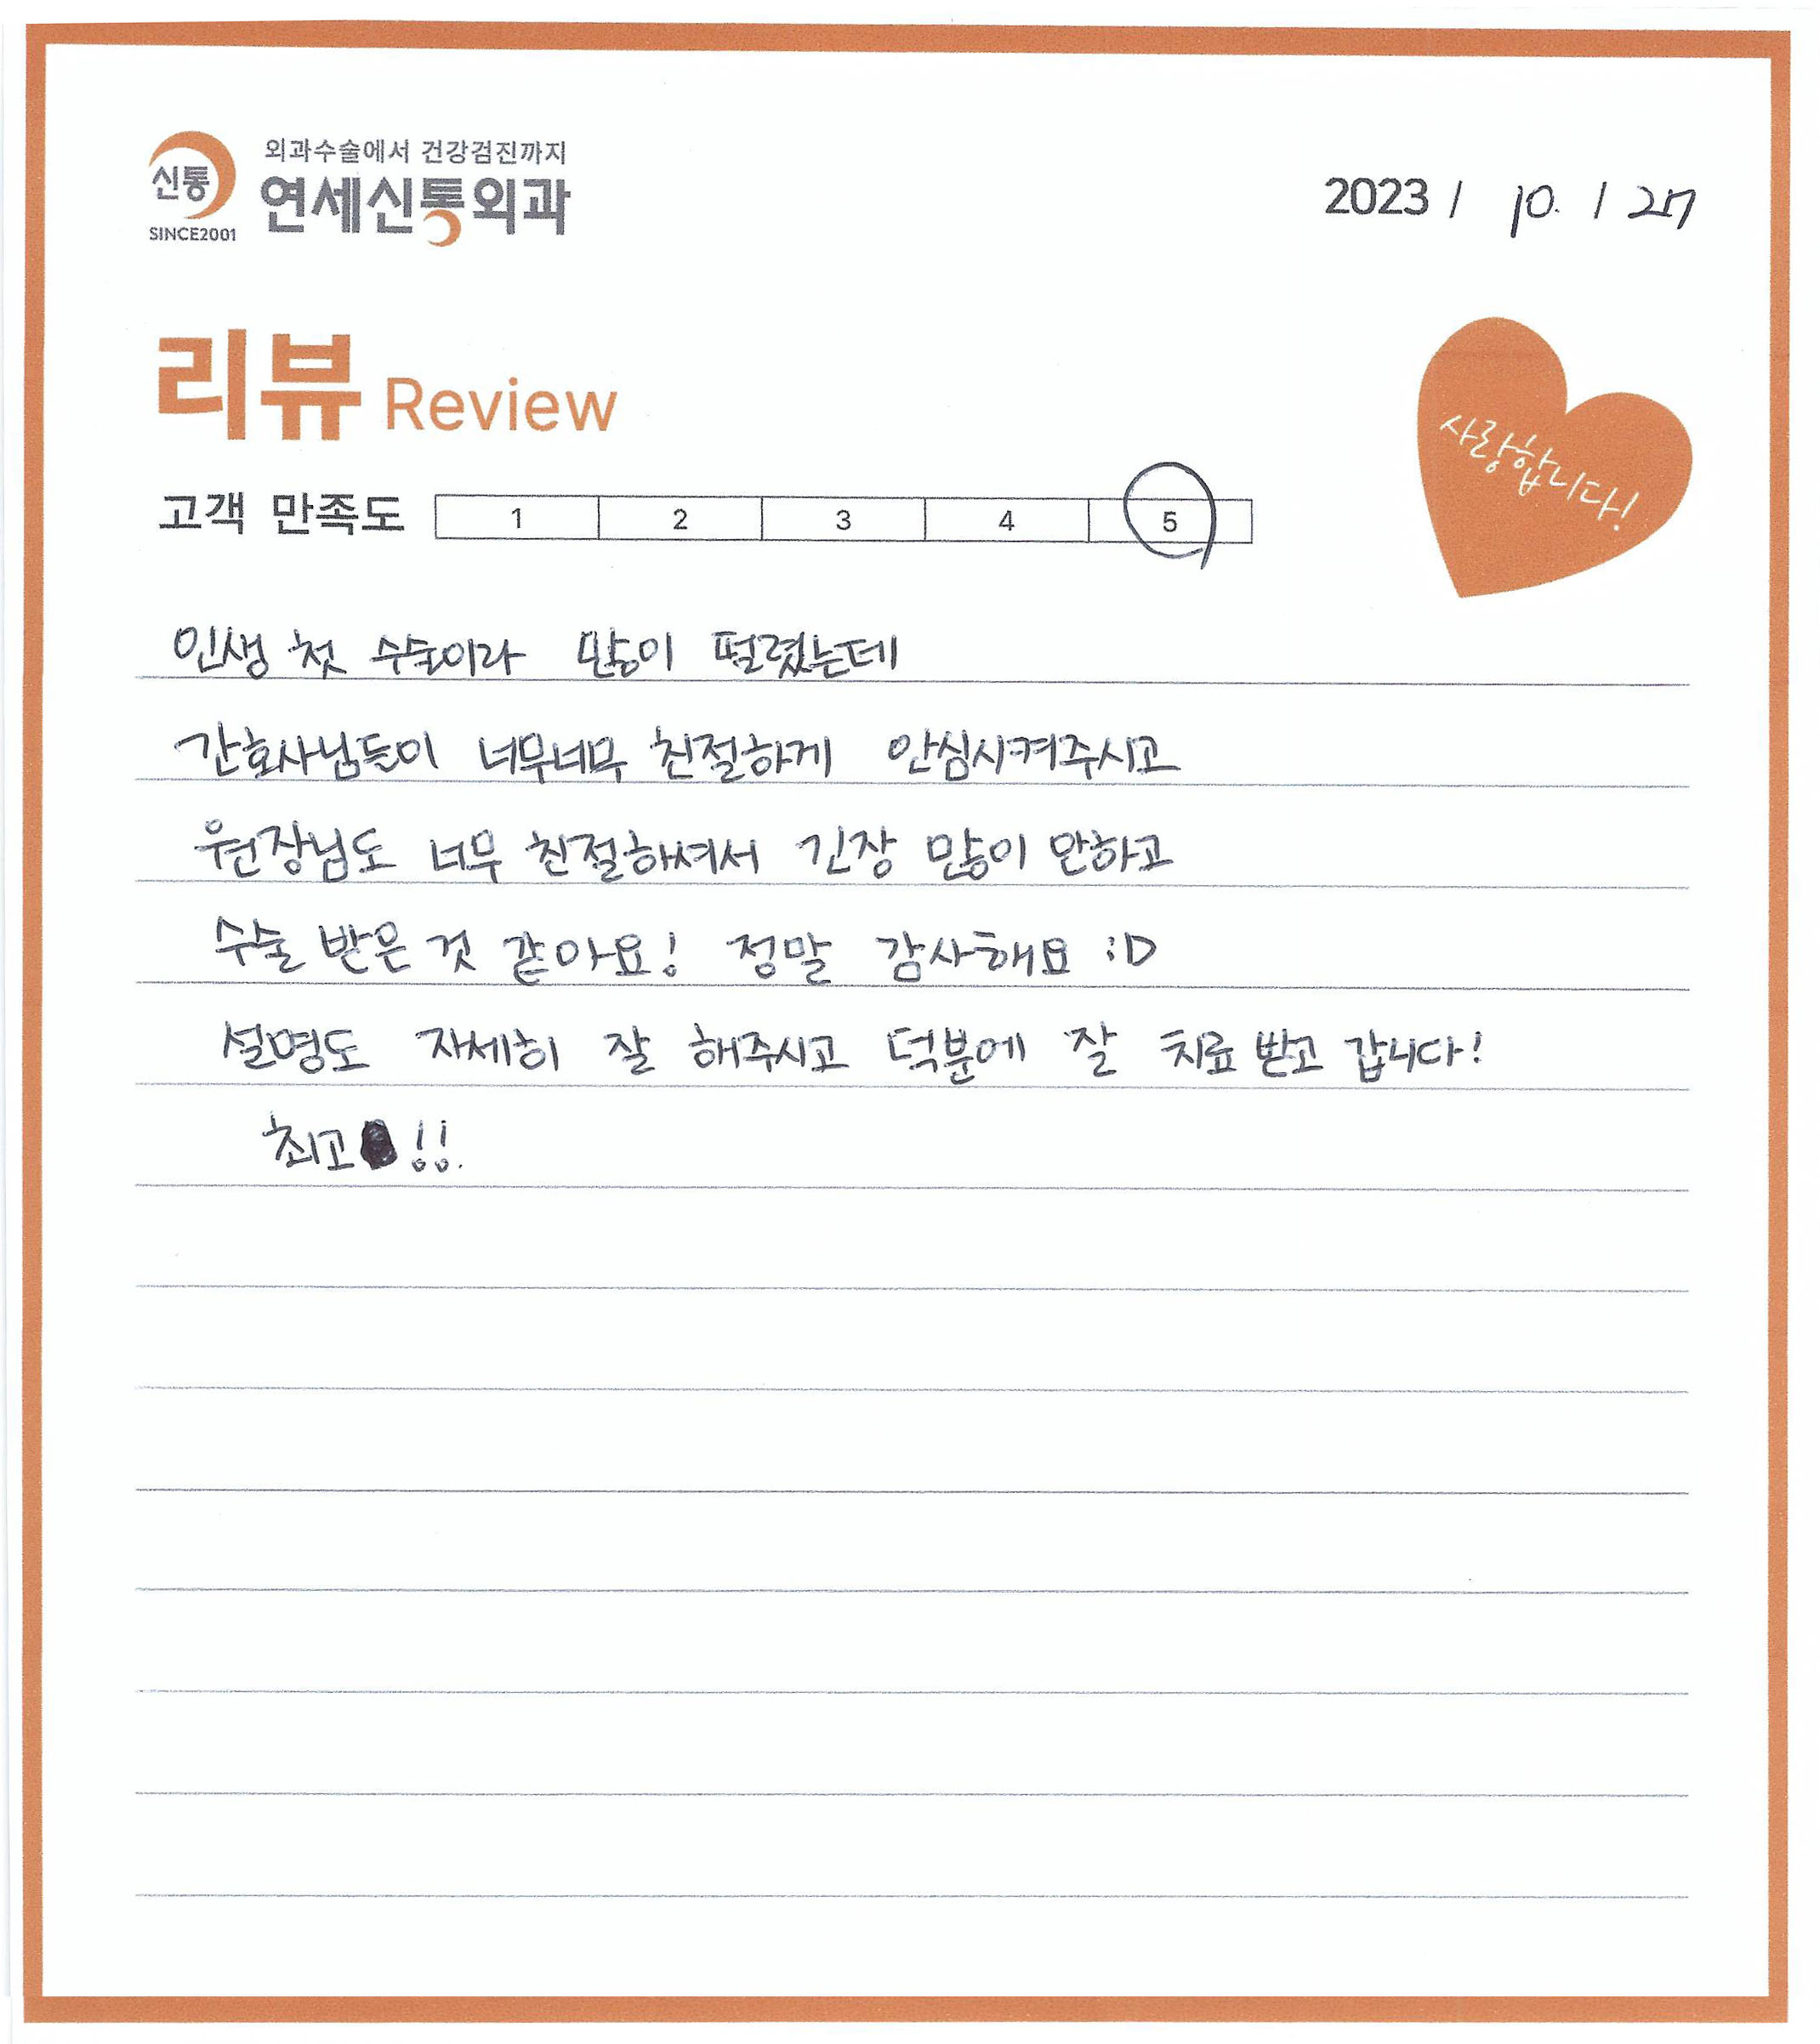 신통
SINCE2001
외과수술에서 건강검진까지
연세신통외과
2023 / 10. / 27
리뷰 Review
사랑합니다!
고객 만족도 1 2 3 4 5
인생 첫 수술이라 많이 떨렸는데
간호사님들이 너무너무 친절하게 안심시켜주시고
원장님도 너무 친절하셔서 긴장 많이 안하고
수술 받은 것 같아요! 정말 감사해요 :D
설명도 자세히 잘 해주시고 덕분에 잘 치료 받고 갑니다!
최고!!